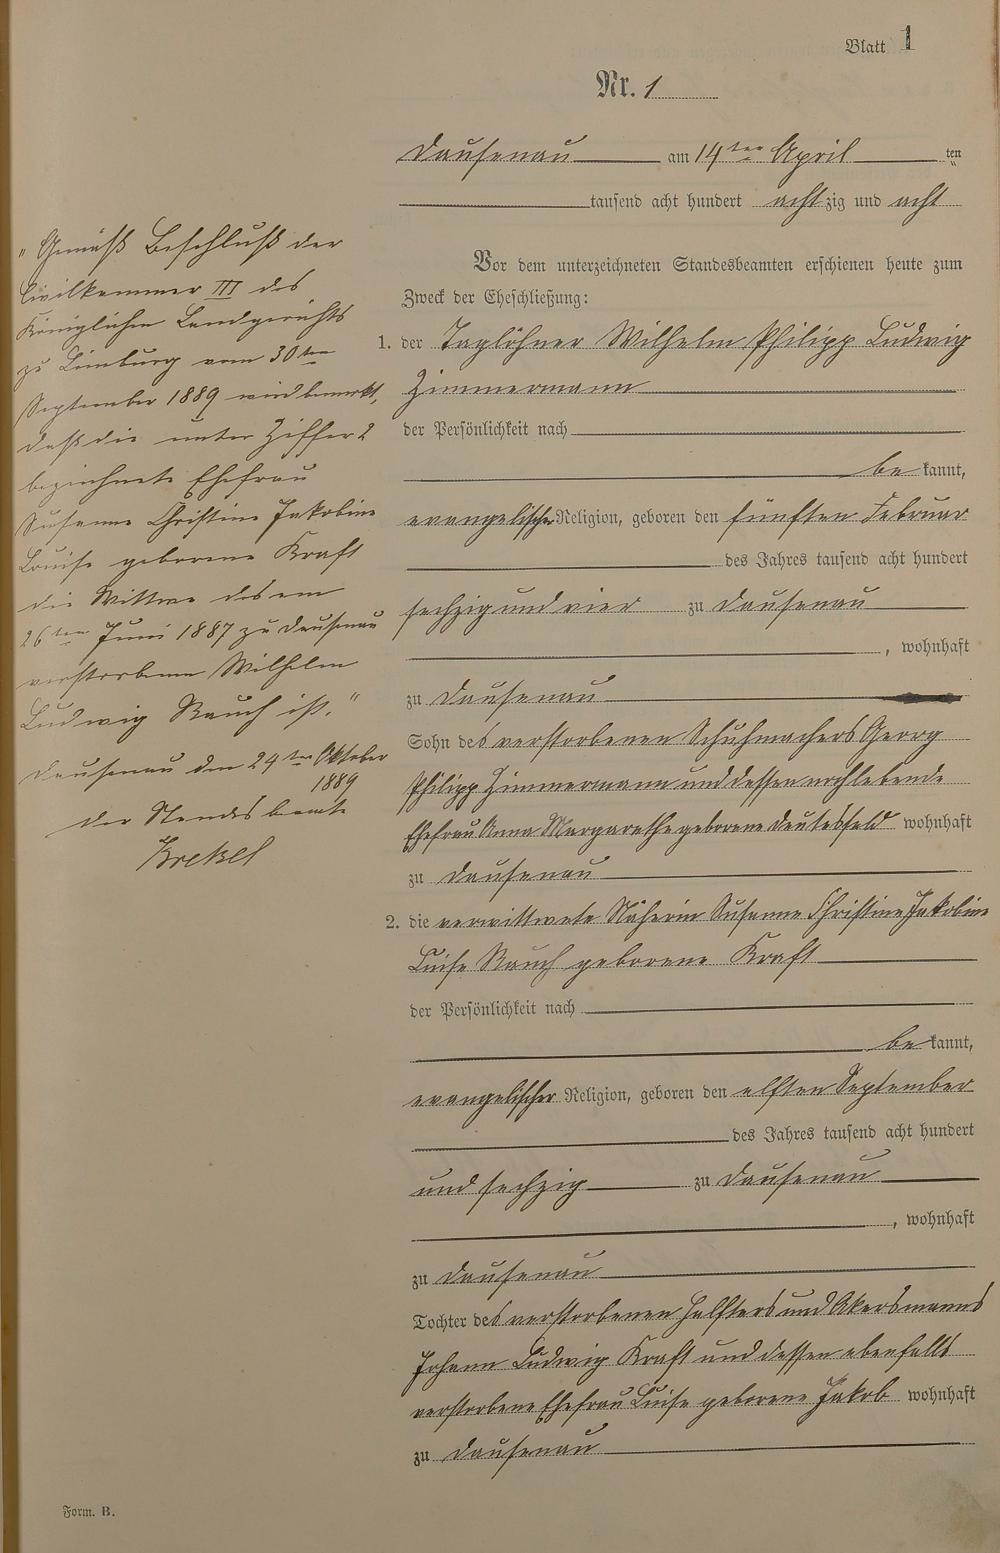 Blatt 1
Nr. 1
Dausenau am 14ten April ten
tausend acht hundert achtzig und acht
Vor dem unterzeichneten Standesbeamten erschienen heute zum
Zweck der Eheschließung:
1. der Taglöhner Wilhelm Philipp Ludwig
Zimmermann
der Persönlichkeit nach
be kannt,
evangelischer Religion, geboren den fünften Februar
des Jahres tausend acht hundert
sechzig und vier zu Dausenau
, wohnhaft
zu Dausenau
Sohn des verstorbenen Schuhmachers Georg
Philipp Zimmermann und dessen noch lebende
Ehefrau Anna Margarethe geborene Deutesfeld wohnhaft
zu Dausenau
2. die verwittwete Näherin Susanne Christine Jakobine
Luise Rauch geborene Kraft
der Persönlichkeit nach
be kannt,
evangelischer Religion, geboren den elften September
des Jahres tausend acht hundert
und sechzig zu Dausenau
, wohnhaft
zu Dausenau
Tochter des verstorbenen und Akersmanns
Johann Ludwig Kraft und dessen ebenfalls
verstorbene Ehefrau Luise geborene Jakob wohnhaft
zu Dausenau
„Gemäß Beschluß der
Civilkammer III des
Königlichen Landgerichts
zu Limburg vom 30ten
September 1889 wird bemerkt,
daß die unter Ziffer 2
bezeichnete Ehefrau
Susanne Christine Jakobine
Louise geborene Kraft
die Wittwe des am
26ten Juni 1887 zu Dausenau
verstorbenen Wilhelm
Ludwig Rauch ist."
Dausenau den 24ten Oktober
1889
der Standesbeamte
Form. B.